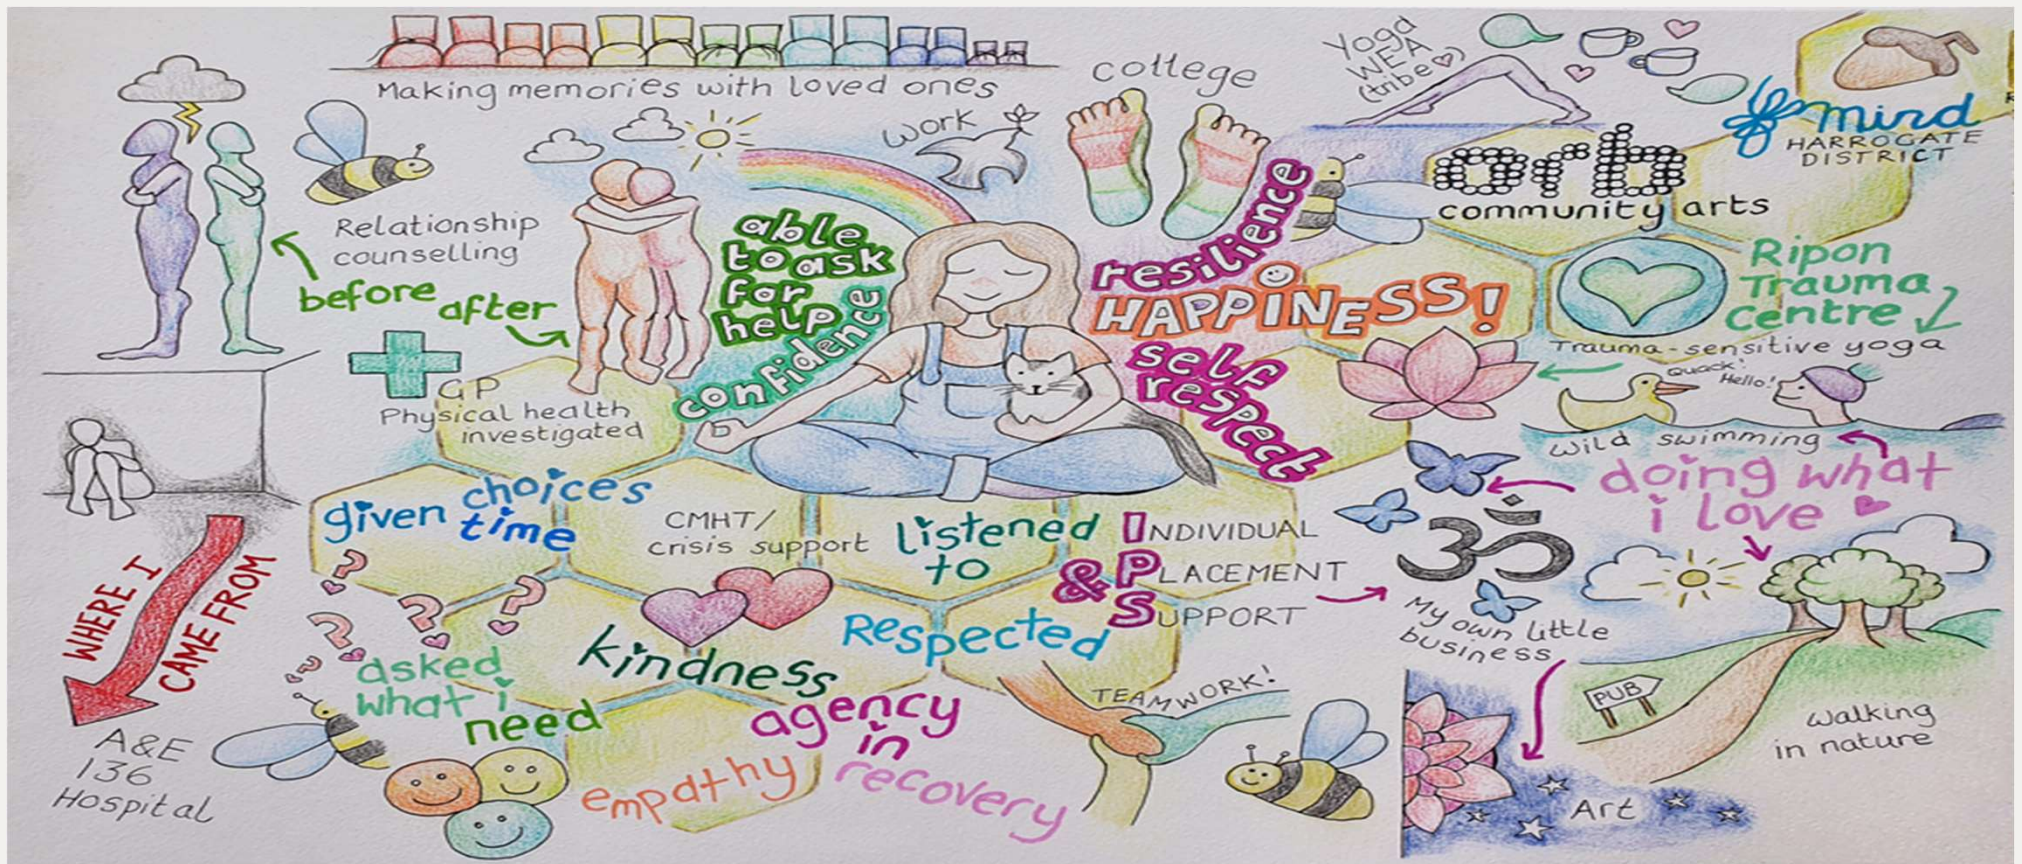 Making memories with loved ones
college
Yoga
WEA
(tribe♡)
mind
HARROGATE
DISTRICT
work
orb
community arts
Relationship
counselling
before
after
able
to ask
for
help
confidence
resilience
HAPPINESS!
self
respect
Ripon
Trauma
Centre
Trauma-sensitive yoga
Quack!
Hello!
wild swimming
doing what
i love
GP
Physical health
investigated
given choices
time
CMHT/
crisis support
listened
to
INDIVIDUAL
& PLACEMENT
SUPPORT
My own little
business
WHERE I
CAME FROM
A&E
136
Hospital
? ? ? ? ?
asked
what i
need
kindness
Respected
TEAMWORK!
agency
in
recovery
empathy
PUB
walking
in nature
Art
ॐ